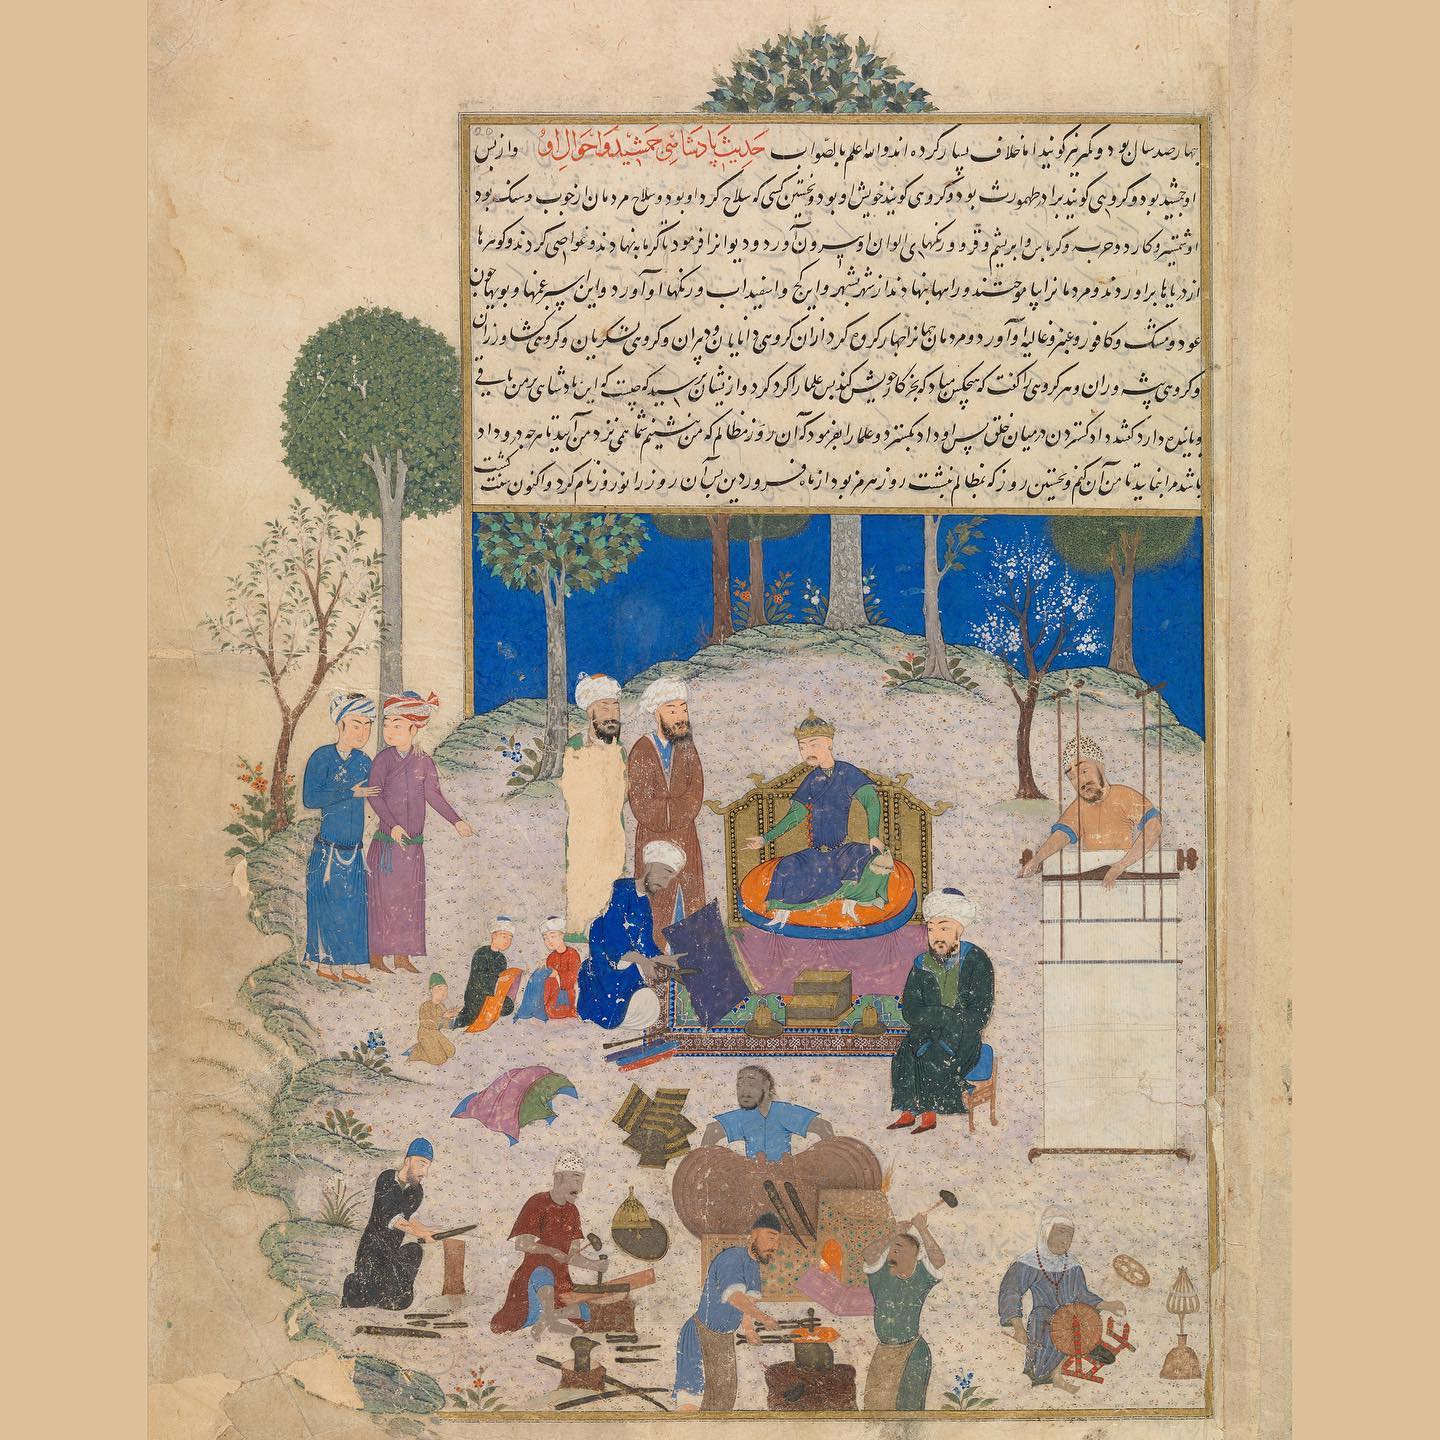 چهارصد سال بود و دیگر نیز گویند اما خلاف بسیار کرده اند والله اعلم بالصواب حدیث پادشاهی جمشید و احوال او و از پس
او جمشید بود و گروهی گویند برادر طهمورث بود و گروهی گویند خویش او بود و نخستین کسی که سلاح کرد او بود و سلاح مردمان از چوب و سنک بود
او شمشیر و کارد و حربه و کرباس و ابریشم و قز و رنگهای الوان او بیرون آورد و دیوانرا فرمود تا گرمابه نهادند و غواصی کردند و گوهرها
از دریاها براوردند و مردمانرا بیاموختند و راهها بنهادند از شهر بشهر و این گچ و اسفیداب و رنگها او آورد و این اسپرغمها و بویها چون
عود و مشک و کافور و عنبر و غالیه او آورد و مردمان جهانرا چهار گروه کرد ازان گروهی دانایان و دبیران و گروهی لشکریان و گروهی کشاورزان
و گروهی پیشه وران و هر گروهی را گفت که هیچکس مباد که بجز کار خویش کند پس علما را گرد کرد و ازیشان پرسید که چیست که این پادشاهی بر من باقی
و پاینده دارد گفتند داد گستردن درمیان خلق پس او داد بگسترد و علما را بفرمود که آن روز مظالم که من بنشینم شما همی نزد من آیید تا هرچه درو داد
باشد مرا بنمایید تا من آن کنم و نخستین روز که بمظالم بنشست روز هرمز بود از ماه فروردین پس آن روز را نوروز نام کرد و اکنون سنت گشت